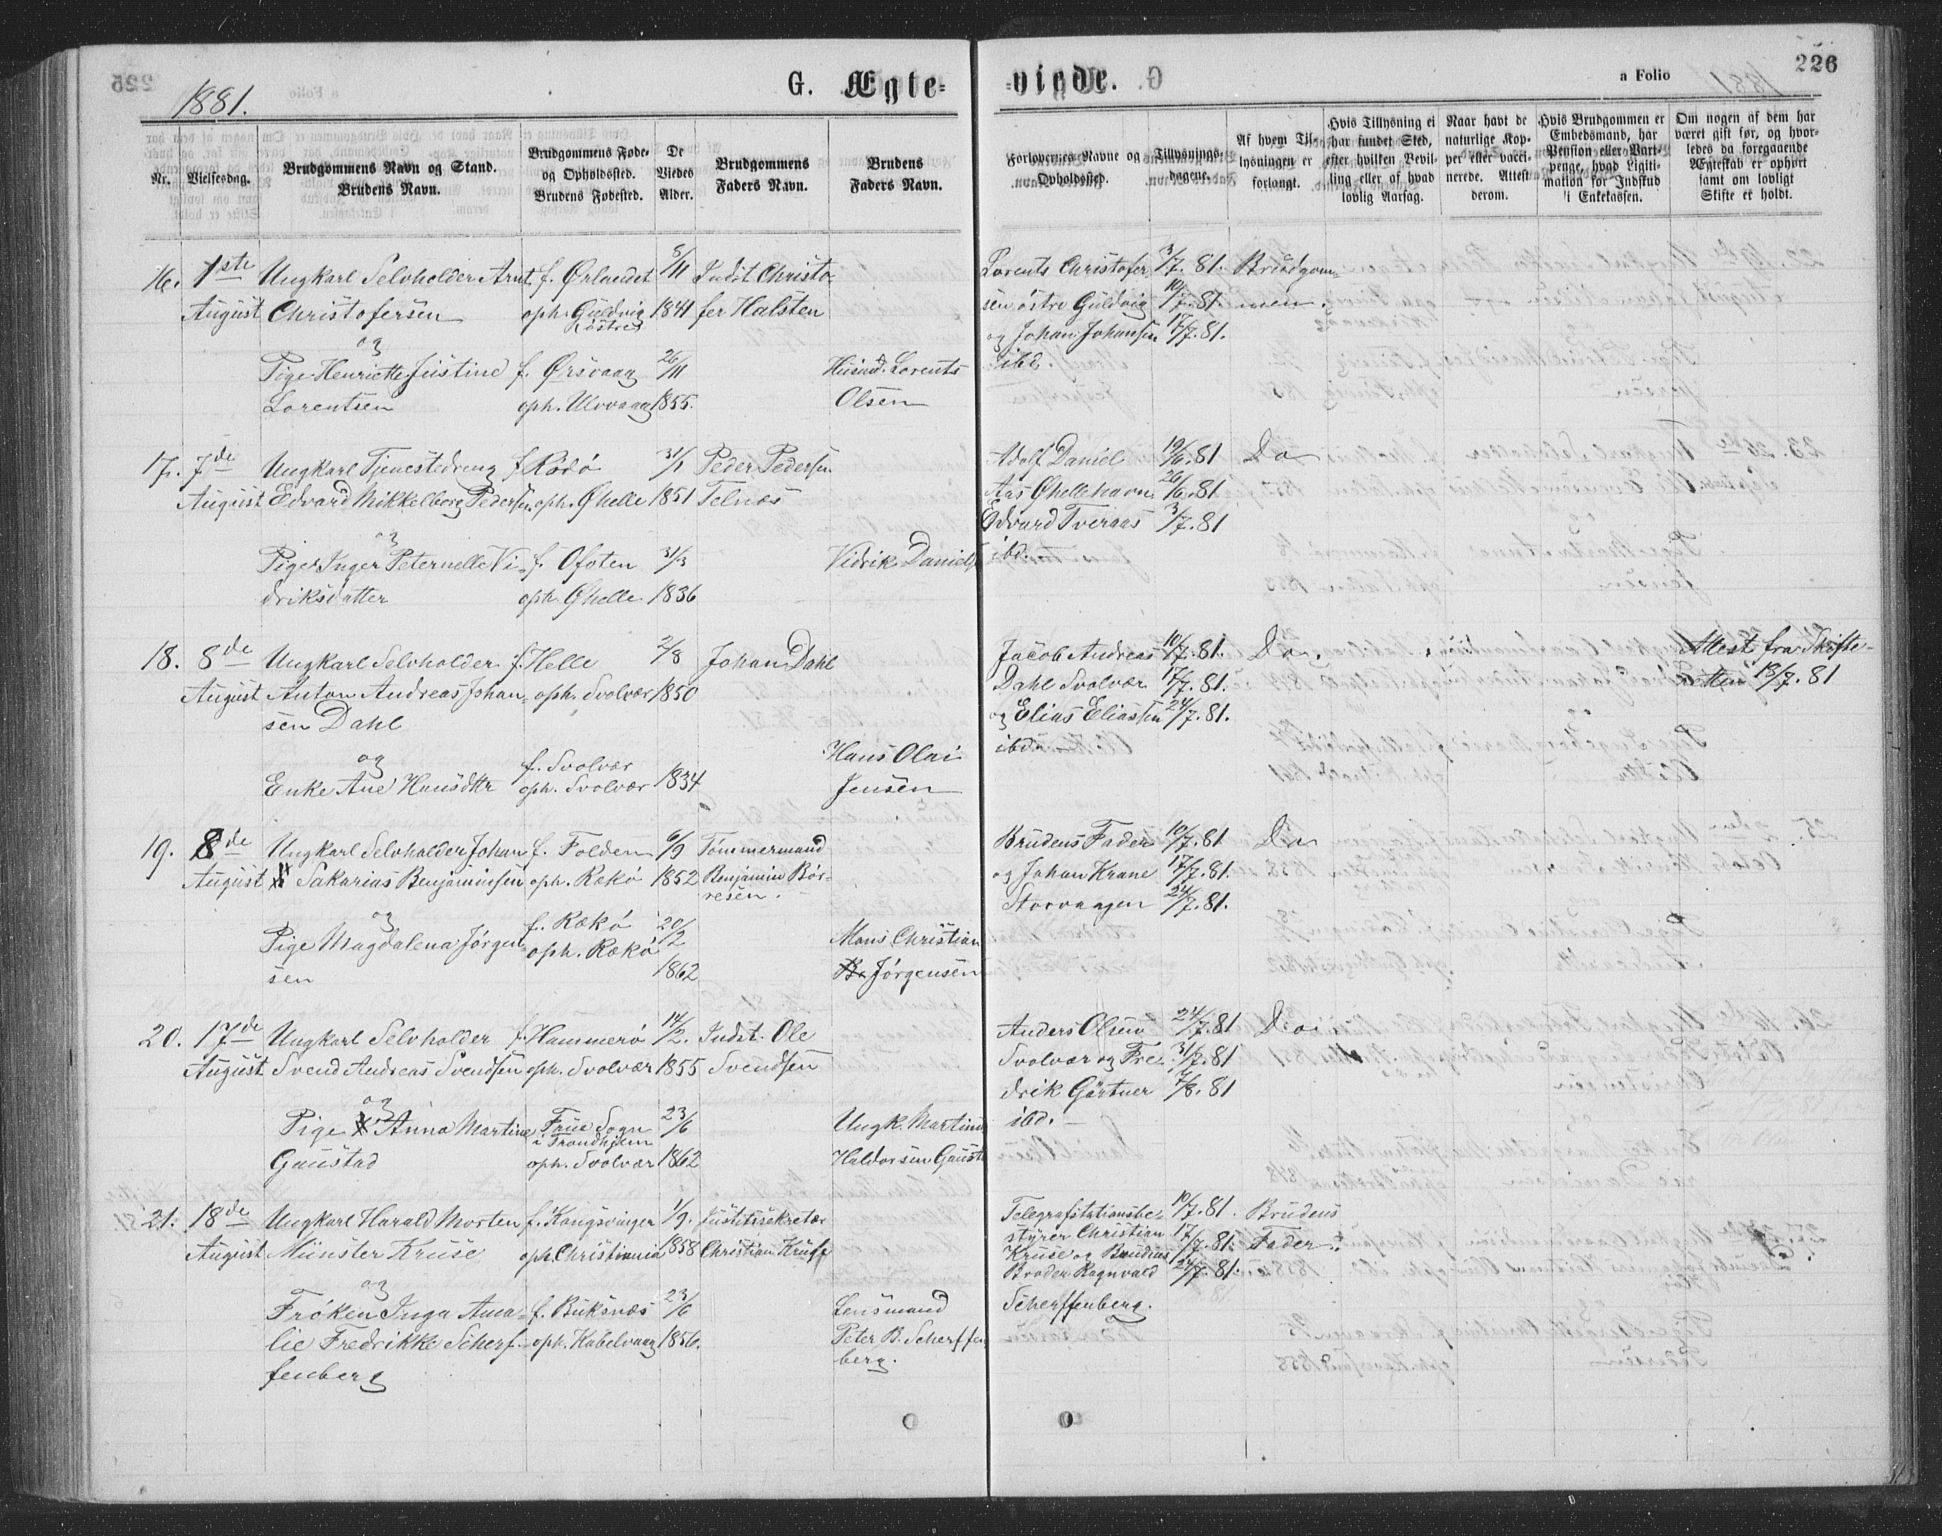 1881.
G. Ægte-
-viede.
a Folio
226
Nr.
Vielsesdag.
Brudgommens Navn og Stand.
Brudens Navn.
Brudgommens Føde-
og Opholdssted.
Brudens Fødested.
De
Viedes
Alder.
Brudgommens
Faders Navn.
Brudens
Faders Navn.
Forlovernes Navne og
Opholdssted.
Tillysnings-
dagene.
Af hvem Til-
lysningen er
forlangt.
Hvis Tillysning ei
har fundet Sted,
efter hvilken Bevil-
ling eller af hvad
lovlig Aarsag.
Naar havt de
naturlige Kop-
per eller vacci-
nerede. Attest
derom.
Hvis Brudgommen er
Embedsmand, har
Pension eller Vart-
penge, hvad Ligiti-
mation for Indskud
i Enkekassen.
Om nogen af dem har
været gift før, og hvor-
ledes da foregaaende
Ægteskab er ophørt
samt om lovligt
Skifte er holdt.
16. 1ste Ungkarl Selvholder Arnt f. Ørlandet 5/11 Indst Christo- Lorents Christofer 3/7.81. Brudgom-
August Christofersen oph. Guldvig 1841 fer Halsten sen østre Guldvig 10/7.81. men.
østre og Johan Johansen 17/7.81.
og
Pige Henriette Justine f. Ørsvaag 26/11 Husmd. Lorents ibd.
Lorentsen oph. Ulvvaag 1855. Olsen
17. 7de Ungkarl Tjenestedreng f. Rødø 31/1 Peder Pedersen Adolf Daniel 19/6.81 Do
August Edvard Mikkelborg Pedersen oph. Ghelle 1851 Telnæs Aas Ghellehavn 26/6.81.
Edvard Tveraas 3/7.81
og
Pige Inger Peternelle Vi- f. Ofoten 31/3 Vidrik Daniels ibd.
driksdatter oph. Ghelle 1836
18. 8de Ungkarl Selvholder f. Helle 2/8 Johan Dahl Jacob Andreas 10/7.81. Do. Attest fra Skifte-
August Anton Andreas Johan- oph. Svolvær 1850 Dahl Svolvær 17/7.81. retten 13/7.81
sen Dahl og Elias Eliassen 24/7.81.
og f. Svolvær Hans Olai ibd.
Enke Ane Hansdttr oph. Svolvær 1834 Jensen
19. 8de Ungkarl Selvholder Johan f. Folden 6/9 Tømmermand Brudens Fader 10/7.81 Do
August Sakarias Benjaminsen oph. Rækø 1852 Benjamin Bør- og Johan Krane 17/7.81.
resen. Storvaagen 24/7.81.
og f. Rækø 20/2
Pige Magdalena Jørgen- oph. Rækø Mons Christian
sen 1862 Jørgensen
20. 17de Ungkarl Selvholder f. Hammerø 14/2. Indst. Ole Anders Olsen 24/7.81 Do.
August Svend Andreas Svendsen oph. Svolvær 1855 Svendsen Svolvær og Fre- 31/7.81
drik Gärtner 7/8.81
og
Pige Anna Martine Frue Sogn 23/6 Ungk. Martinus ibd.
i Trondhjem
Gaustad oph. Svolvær 1862 Haldorsen Gausta
21. 18de Ungkarl Harald Morten f. Kongsvinger 1/9. Justitssekretær Telegrafstationsbe- 10/7.81. Brudens
August Münster Kruse oph. Christiania 1858 Christian Kruse styrer Christian 17/7.81. Fader.
Kruse og Brudens
og Broder Ragnvald 24/7.81.
Frøken Inga Ama- f. Buksnæs 23/6 Lensmand Scherffenberg.
lie Fredrikke Scherf- oph. Kabelvaag 1856. Peter B. Scherffen
fenberg berg.